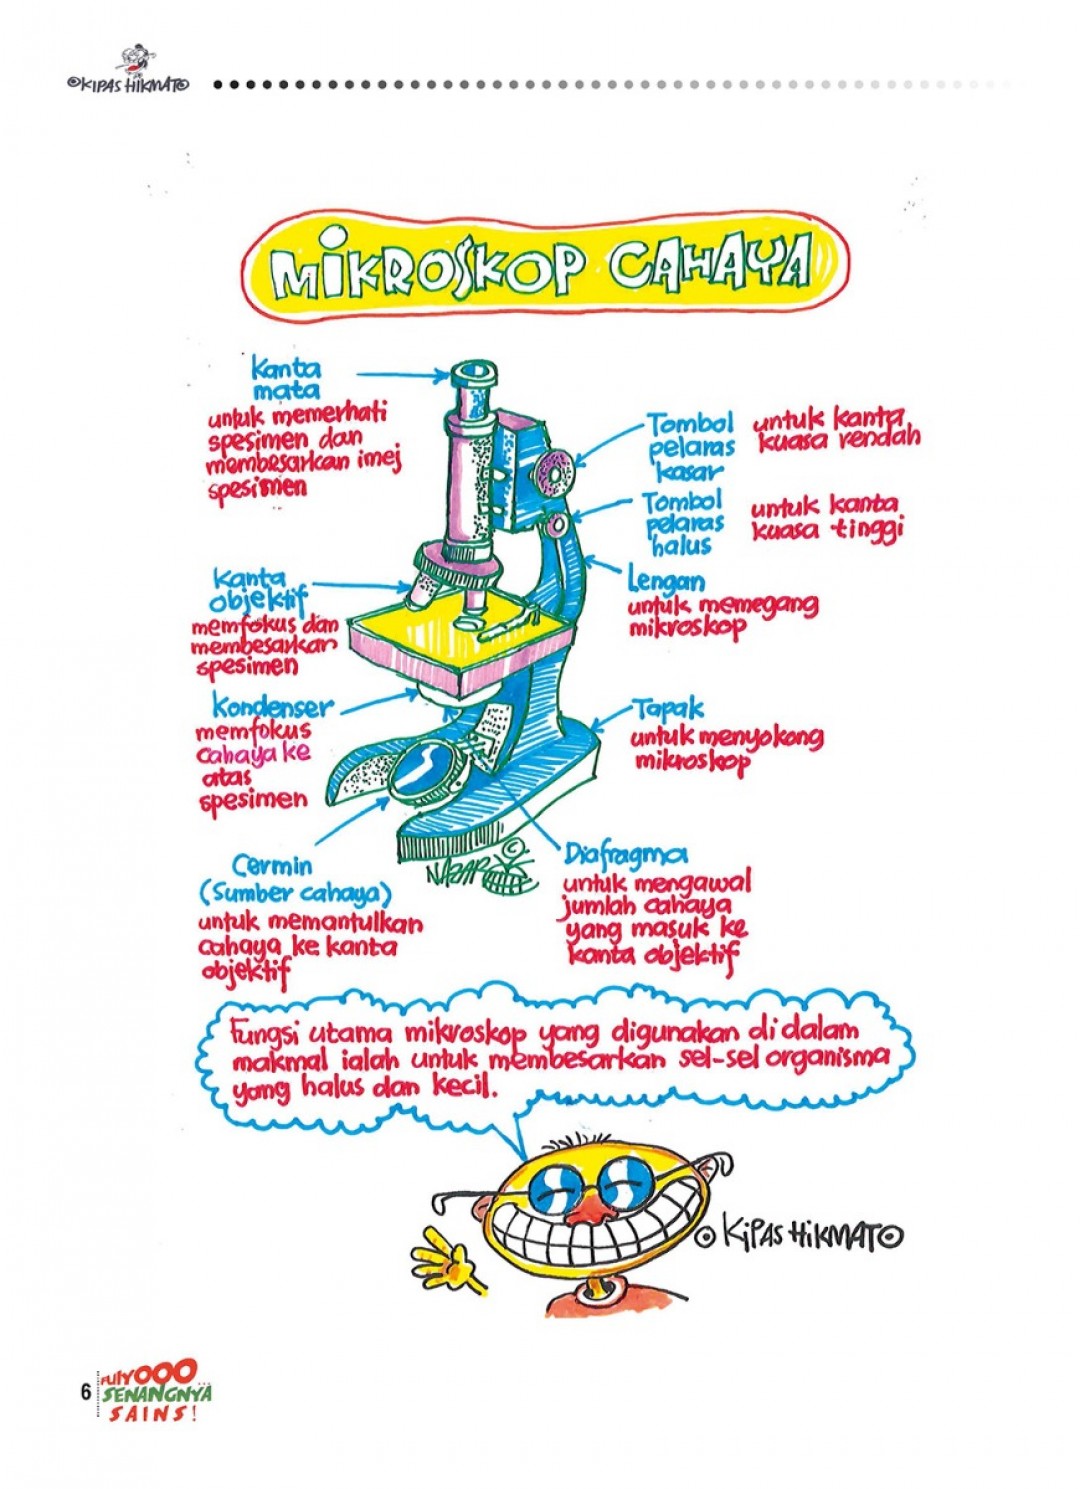 ©KIPAS HIKMATO
MIKROSKOP CAHAYA
Kanta
mata
untuk memerhati
spesimen dan
membesarkan imej
spesimen
Tombol
pelaras
kasar
untuk kanta
kuasa rendah
Tombol
pelaras
halus
untuk kanta
kuasa tinggi
Kanta
objektif
memfokus dan
membesarkan
spesimen
Lengan
untuk memegang
mikroskop
Kondenser
memfokus
cahaya ke
atas
spesimen
Tapak
untuk menyokong
mikroskop
Cermin
(Sumber cahaya)
untuk memantulkan
cahaya ke kanta
objektif
Diafragma
untuk mengawal
jumlah cahaya
yang masuk ke
kanta objektif
©
Fungsi utama mikroskop yang digunakan di dalam
makmal ialah untuk membesarkan sel-sel organisma
yang halus dan kecil.
© KiPAS HiKMATO
6
FUIYOOO...
SENANGNYA
SAINS!